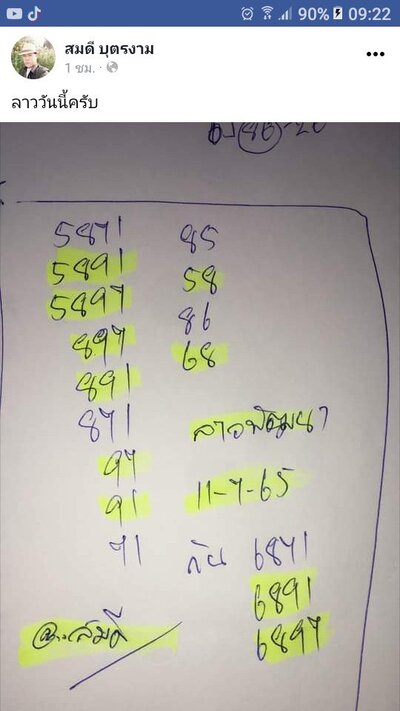 90% 09:22
สมดี บุตรงาม
1 ชม.
ลาววันนี้ครับ
5871 85
5891 58
5897 86
897 68
891
871 ลาวพัฒนา
97
91 11-7-65
71 กัน 6871
6891
อ.สมดี 6897